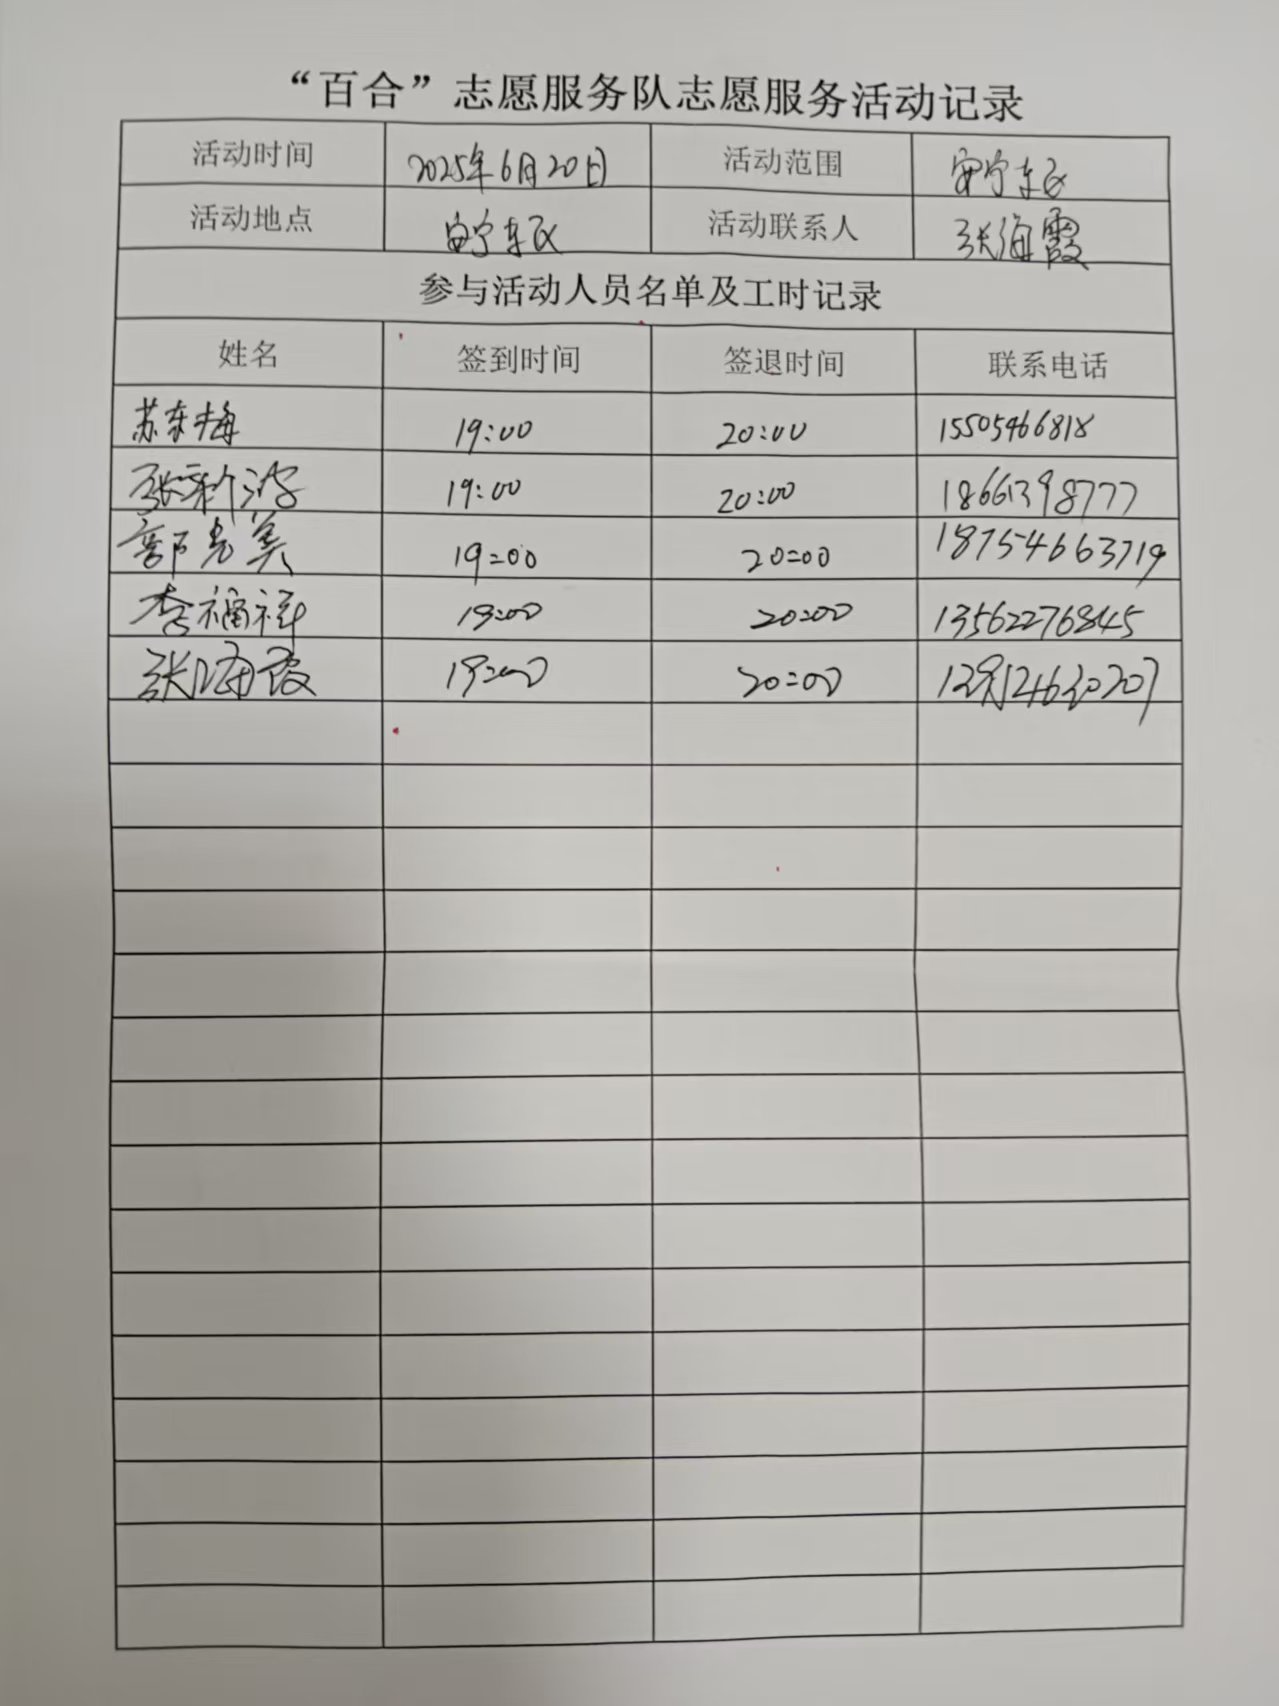 “百合”志愿服务队志愿服务活动记录
活动时间 2025年6月20日 活动范围 安宁东区
活动地点 安宁东区 活动联系人 张海霞
参与活动人员名单及工时记录
姓名 签到时间 签退时间 联系电话
苏东梅 19:00 20:00 15505466818
张新 19:00 20:00 18661398777
郭光美 19:00 20:00 18754663719
李福祥 19:00 20:00 13562276845
张海霞 19:00 20:00